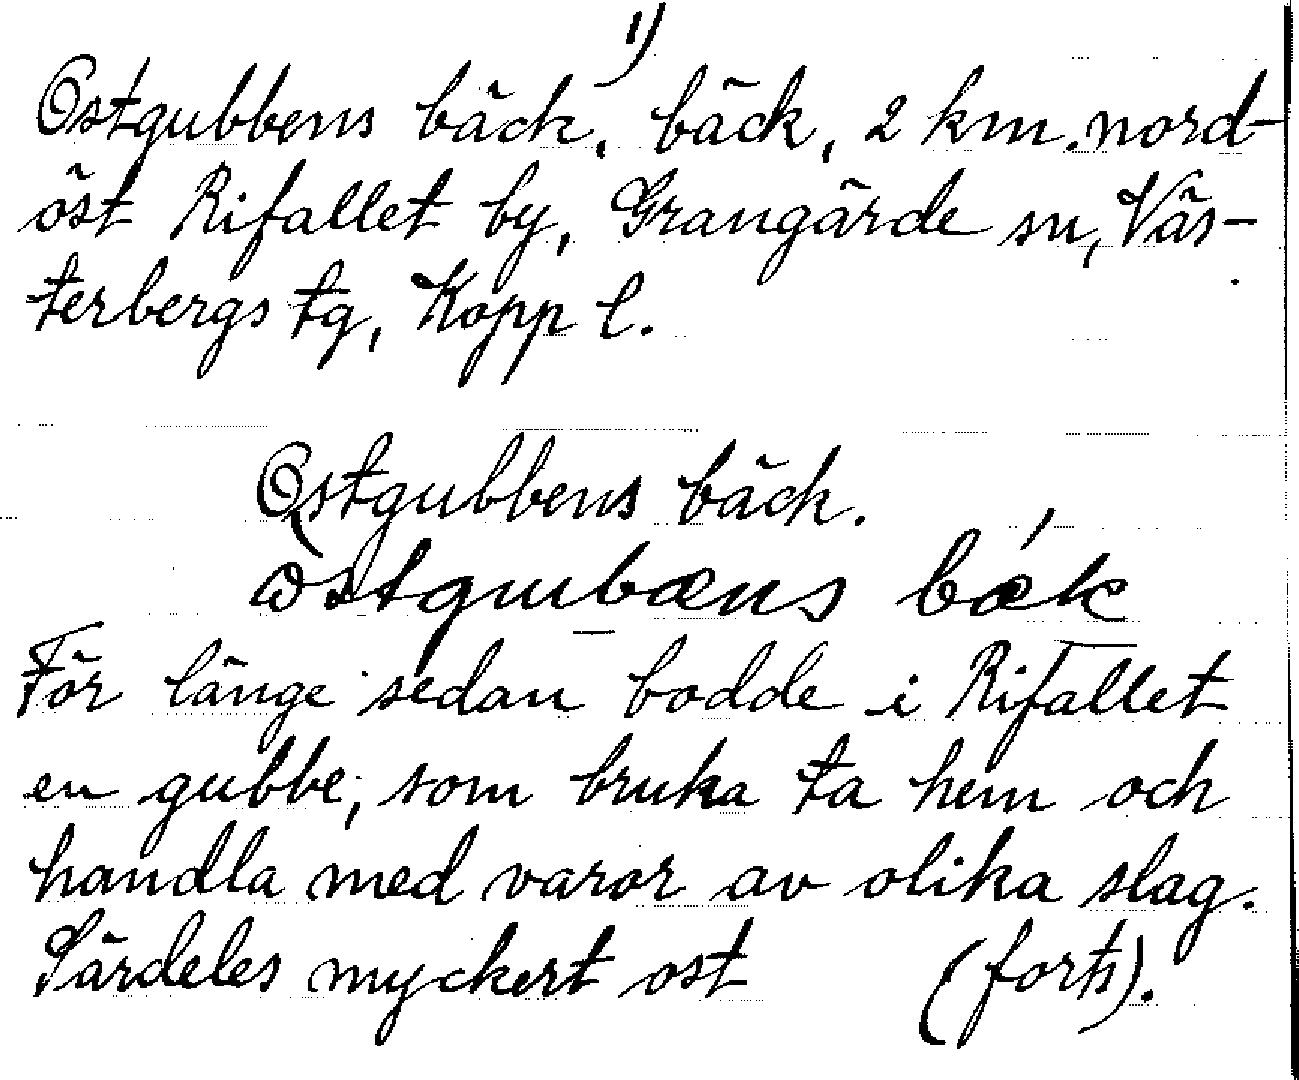 1)
Ostgubbens bäck, bäck, 2 km. nord-
öst Rifallet by, Grangärde sn, Väs-
terbergs tg, Kopp l.
Ostgubbens bäck.
ωstgubæns bæ´k
För länge sedan bodde i Rifallet
en gubbe, som bruka ta hem och
handla med varor av olika slag.
Särdeles myckert ost (forts).